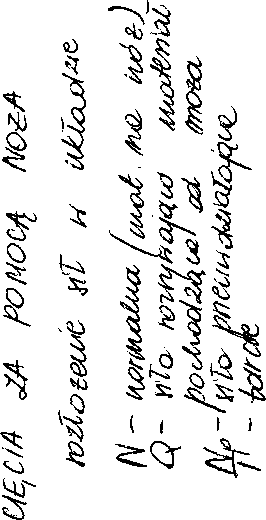 CIĘCIA ZA POMOCĄ NOŻA
rozłożenie sił w układzie
N – normalna (mat. na nóż)
Q – siła rozrywająca materiał
pochodząca od noża
Np – siła przeciwdziałająca
T – tarcie